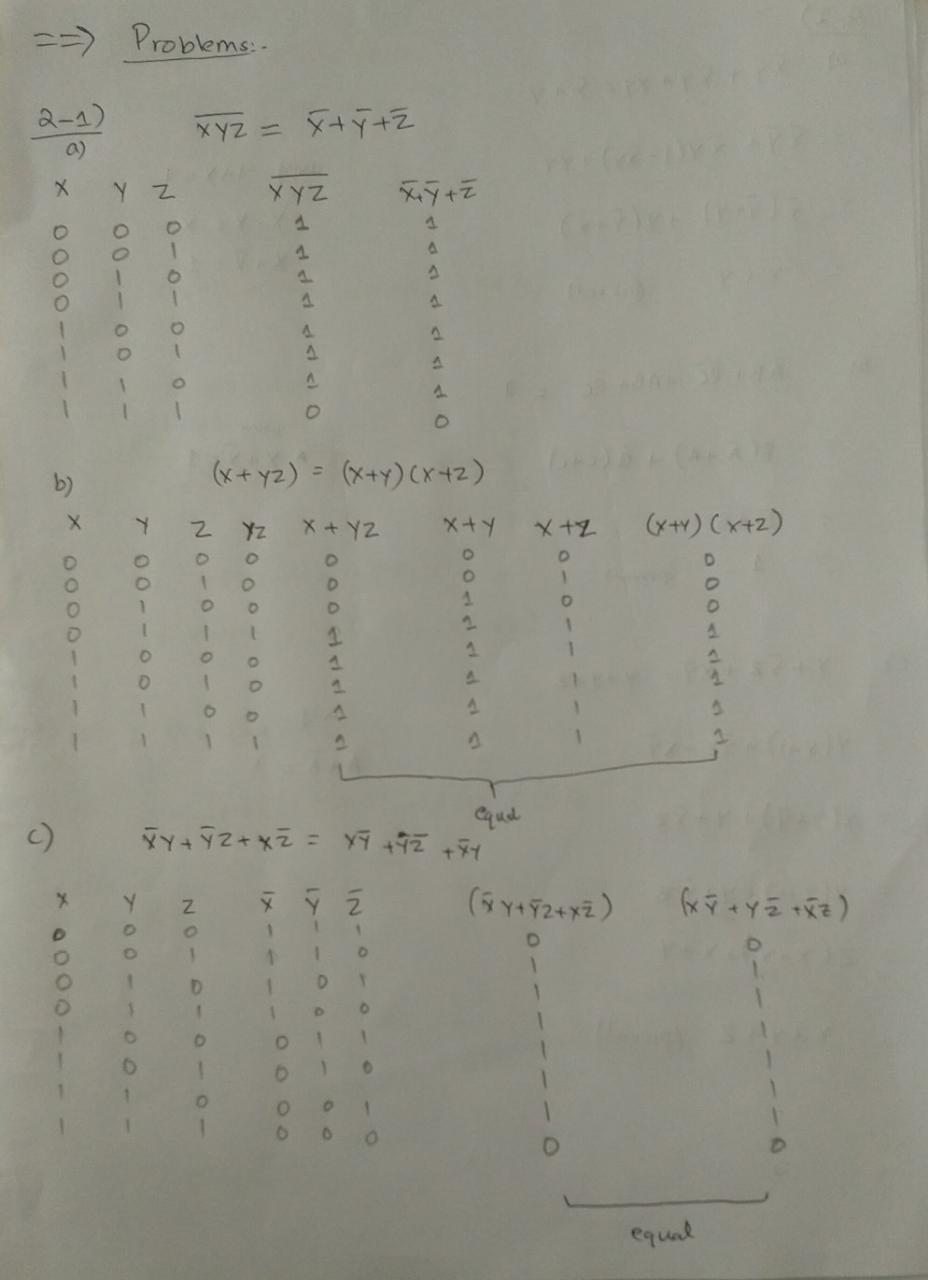 ==> Problems:-
2-1)
a) X̅Y̅Z̅ = X̅+Y̅+Z̅
X Y Z X̅Y̅Z̅ X̅+Y̅+Z̅
0 0 0 1 1
0 0 1 1 1
0 1 0 1 1
0 1 1 1 1
1 0 0 1 1
1 0 1 1 1
1 1 0 1 1
1 1 1 0 0
b) (X+YZ) = (X+Y)(X+Z)
X Y Z YZ X+YZ X+Y X+Z (X+Y)(X+Z)
0 0 0 0 0 0 0 0
0 0 1 0 0 0 1 0
0 1 0 0 0 1 0 0
0 1 1 1 1 1 1 1
1 0 0 0 1 1 1 1
1 0 1 0 1 1 1 1
1 1 0 0 1 1 1 1
1 1 1 1 1 1 1 1
equal
c) X̅Y+Y̅Z+XZ̅ = XY̅+YZ̅+X̅Y
X Y Z X̅ Y̅ Z̅ (X̅Y+Y̅Z+XZ̅) (XY̅+YZ̅+X̅Z)
0 0 0 1 1 1 0 0
0 0 1 1 1 0 1 1
0 1 0 1 0 1 1 1
0 1 1 1 0 0 1 1
1 0 0 0 1 1 1 1
1 0 1 0 1 0 1 1
1 1 0 0 0 1 1 1
1 1 1 0 0 0 0 0
equal